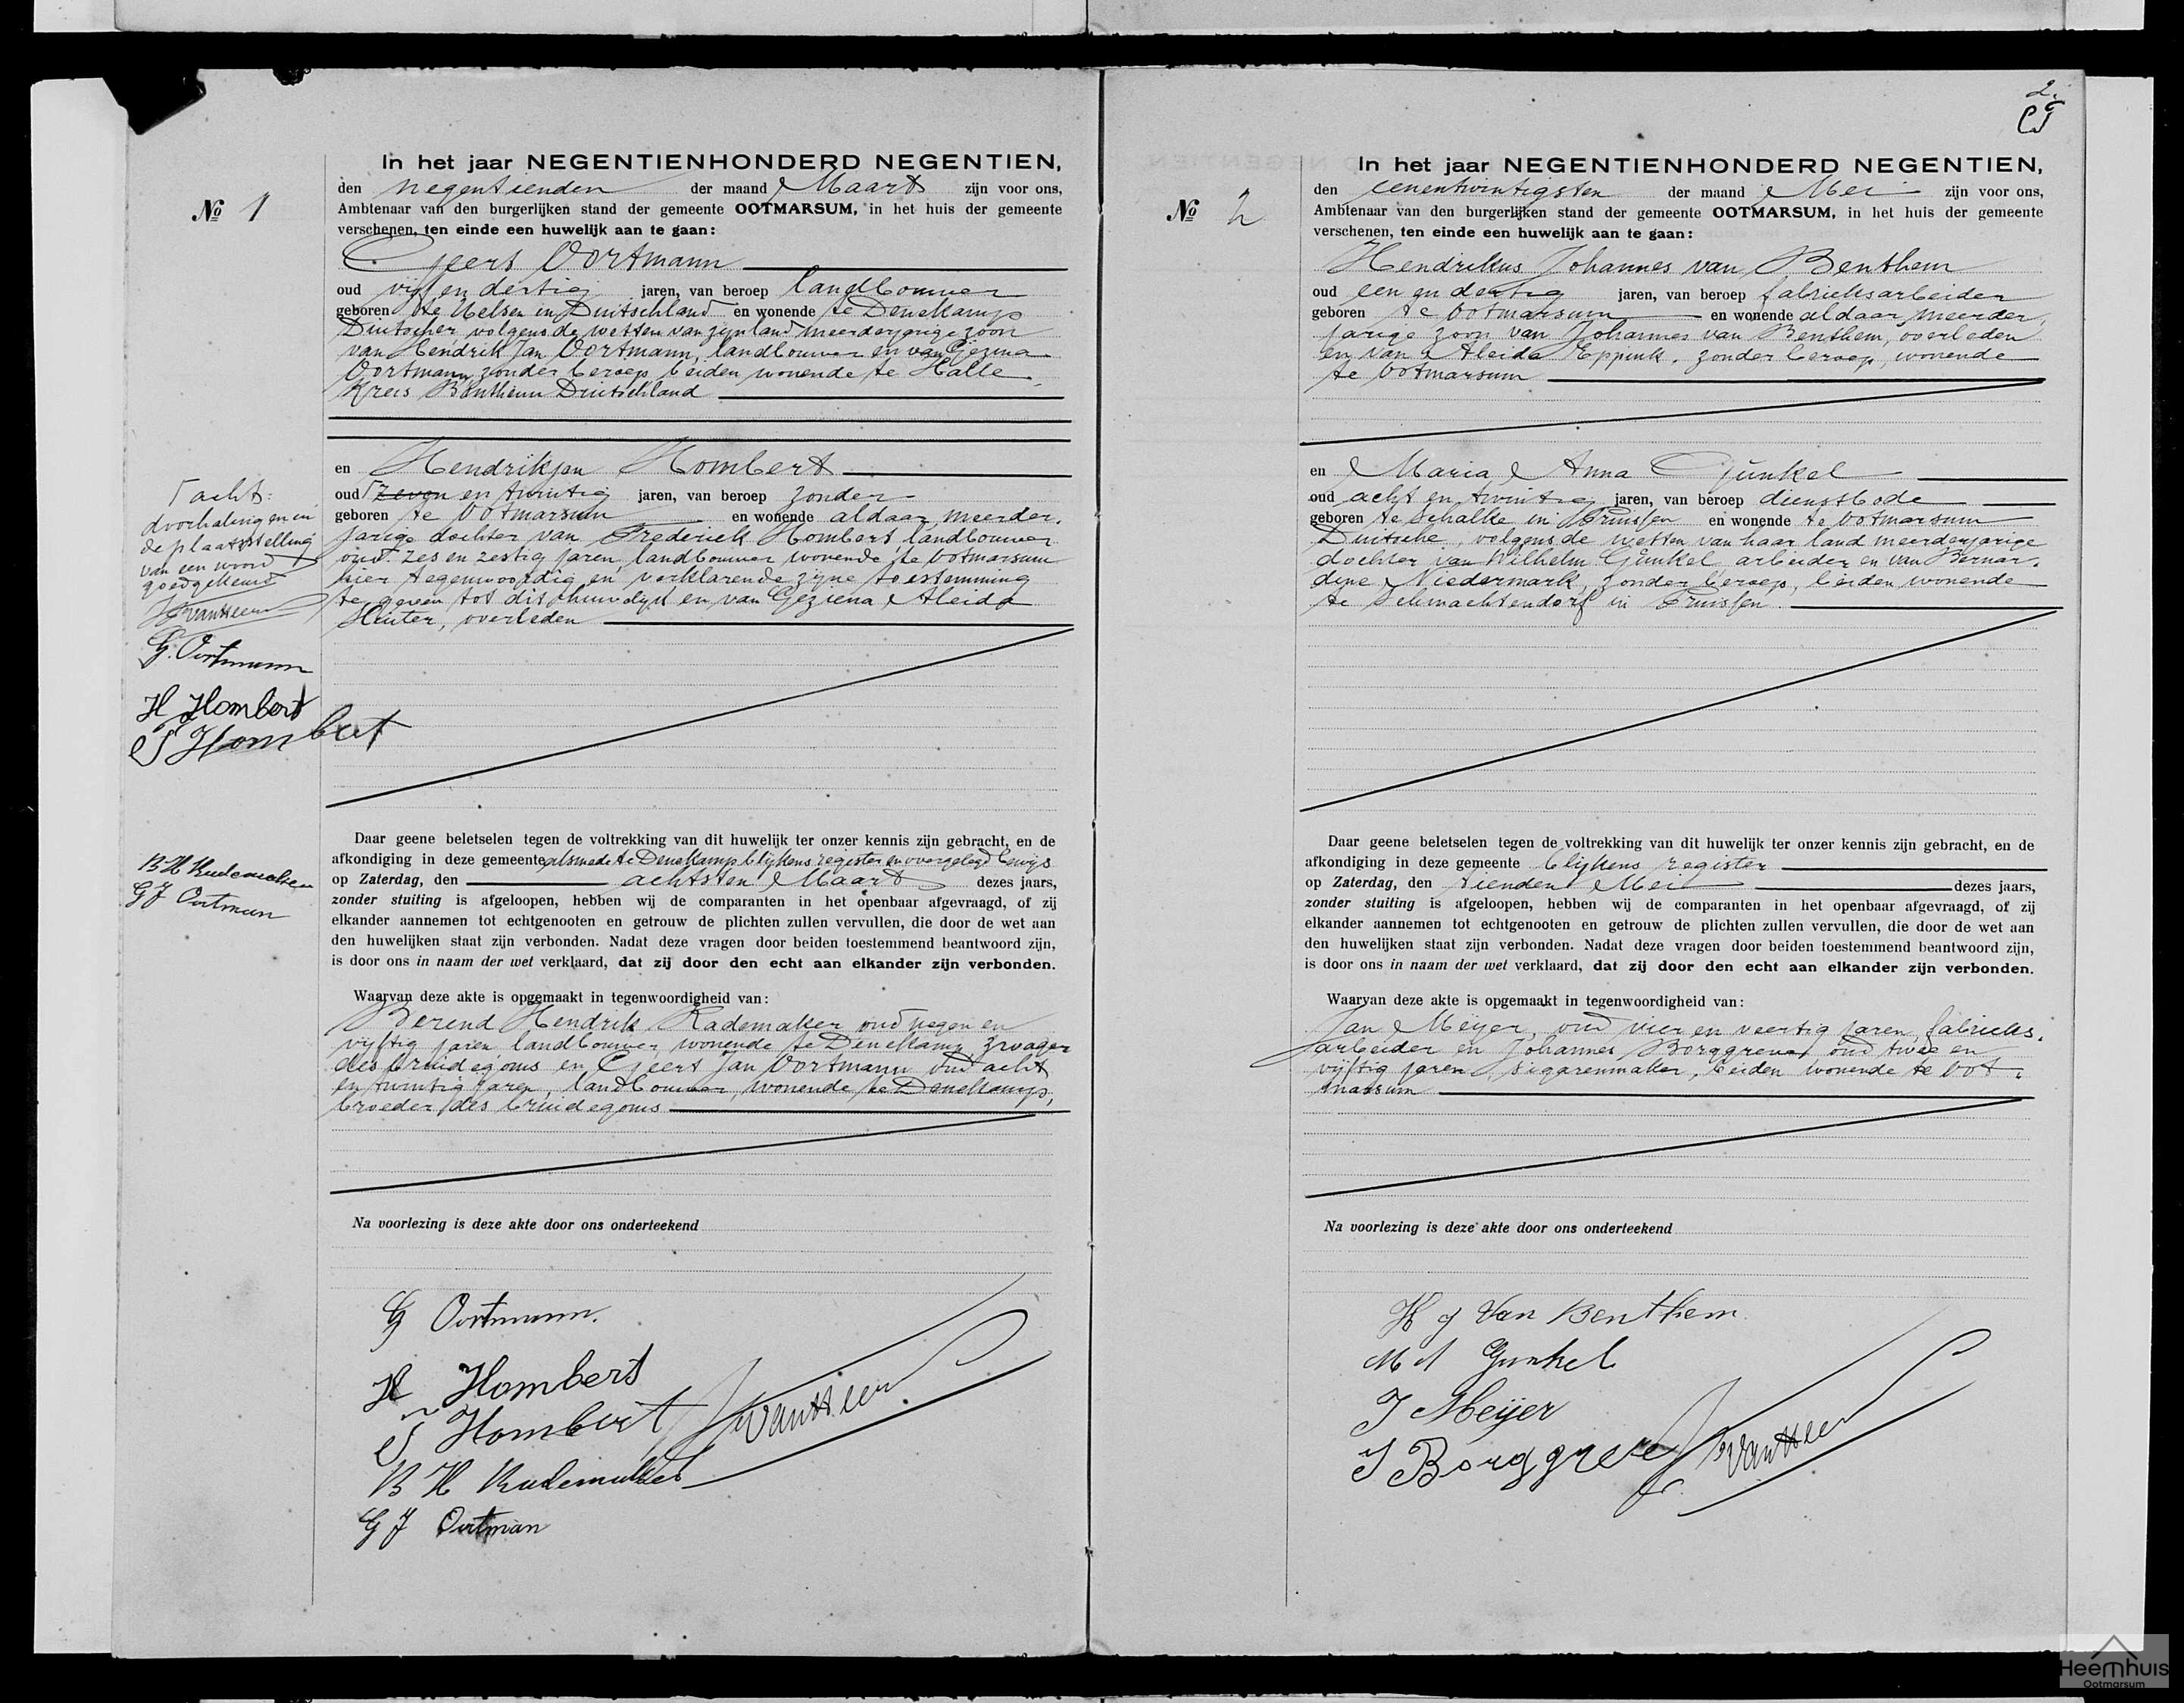 No 1
In het jaar NEGENTIENHONDERD NEGENTIEN,
den negentienden der maand Maart zijn voor ons,
Ambtenaar van den burgerlijken stand der gemeente OOTMARSUM, in het huis der gemeente
verschenen, ten einde een huwelijk aan te gaan:
Geert Oortmann
oud vijf en dertig jaren, van beroep landbouwer
geboren te Uelsen in Duitschland en wonende te Denekamp
Duitscher, volgens de wetten van zijn land meerderjarige zoon
van Hendrik Jan Oortmann, landbouwer en van Gezina
Oortmann, zonder beroep beiden wonende te Halle
Kreis Bentheim Duitschland
en Hendrikjen Hombert
oud zeven en twintig jaren, van beroep zonder
geboren te Ootmarsum en wonende aldaar, meerder,
jarige dochter van Frederick Hombert landbouwer
oud zes en zestig jaren, landbouwer wonende te Ootmarsum
hier tegenwoordig en verklarende zijne toestemming
te geven tot dit huwelijk en van Geziena Aleida
overleden
acht:
doorhaling en in
de plaatsstelling
van een woord
goedgekeurd
G. Oortmann
H Hombert
F Hombert
B H Rademaker
G J Oortman
Daar geene beletselen tegen de voltrekking van dit huwelijk ter onzer kennis zijn gebracht, en de
afkondiging in deze gemeente alsmede te Denekamp blijkens register en overgelegd bewijs
op Zaterdag, den achtsten Maart dezes jaars,
zonder stuiting is afgeloopen, hebben wij de comparanten in het openbaar afgevraagd, of zij
elkander aannemen tot echtgenooten en getrouw de plichten zullen vervullen, die door de wet aan
den huwelijken staat zijn verbonden. Nadat deze vragen door beiden toestemmend beantwoord zijn,
is door ons in naam der wet verklaard, dat zij door den echt aan elkander zijn verbonden.
Waarvan deze akte is opgemaakt in tegenwoordigheid van:
Berend Hendrik Rademaker oud negen en
vijftig jaren landbouwer, wonende te Denekamp, zwager
des bruidegoms en Geert Jan Oortmann oud acht
en twintig jaren, landbouwer, wonende te Denekamp,
broeder des bruidegoms
Na voorlezing is deze akte door ons onderteekend
G Oortmann.
H Hombert
F Hombert
B H Rademaker
G J Oortman
2.
No 2
In het jaar NEGENTIENHONDERD NEGENTIEN,
den eenentwintigsten der maand Mei zijn voor ons,
Ambtenaar van den burgerlijken stand der gemeente OOTMARSUM, in het huis der gemeente
verschenen, ten einde een huwelijk aan te gaan:
Hendrikus Johannes van Benthem
oud een en dertig jaren, van beroep fabrieksarbeider
geboren te Ootmarsum en wonende aldaar, meerder,
jarige zoon van Johannes van Benthem, overleden
en van Aleida Eppink, zonder beroep, wonende
te Ootmarsum
en Maria Anna Günkel
oud acht en twintig jaren, van beroep dienstbode
geboren te Schalke in Pruissen en wonende te Ootmarsum
Duitsche, volgens de wetten van haar land meerderjarige
dochter van Wilhelm Günkel, arbeider en van Bernar,
dine Niedermark, zonder beroep, beiden wonende
te Schmachtendorf in Pruissen.
Daar geene beletselen tegen de voltrekking van dit huwelijk ter onzer kennis zijn gebracht, en de
afkondiging in deze gemeente blijkens register
op Zaterdag, den tienden Mei dezes jaars,
zonder stuiting is afgeloopen, hebben wij de comparanten in het openbaar afgevraagd, of zij
elkander aannemen tot echtgenooten en getrouw de plichten zullen vervullen, die door de wet aan
den huwelijken staat zijn verbonden. Nadat deze vragen door beiden toestemmend beantwoord zijn,
is door ons in naam der wet verklaard, dat zij door den echt aan elkander zijn verbonden.
Waarvan deze akte is opgemaakt in tegenwoordigheid van:
Jan Meijer, oud vier en veertig jaren, fabrieks,
arbeider en Johannes Borggreve, oud twee en
vijftig jaren, sigarenmaker, beiden wonende te Oot,
marsum
Na voorlezing is deze akte door ons onderteekend
H J Van Benthem
M A Gunkel
J Meijer
J Borggreve
Heemhuis
Ootmarsum